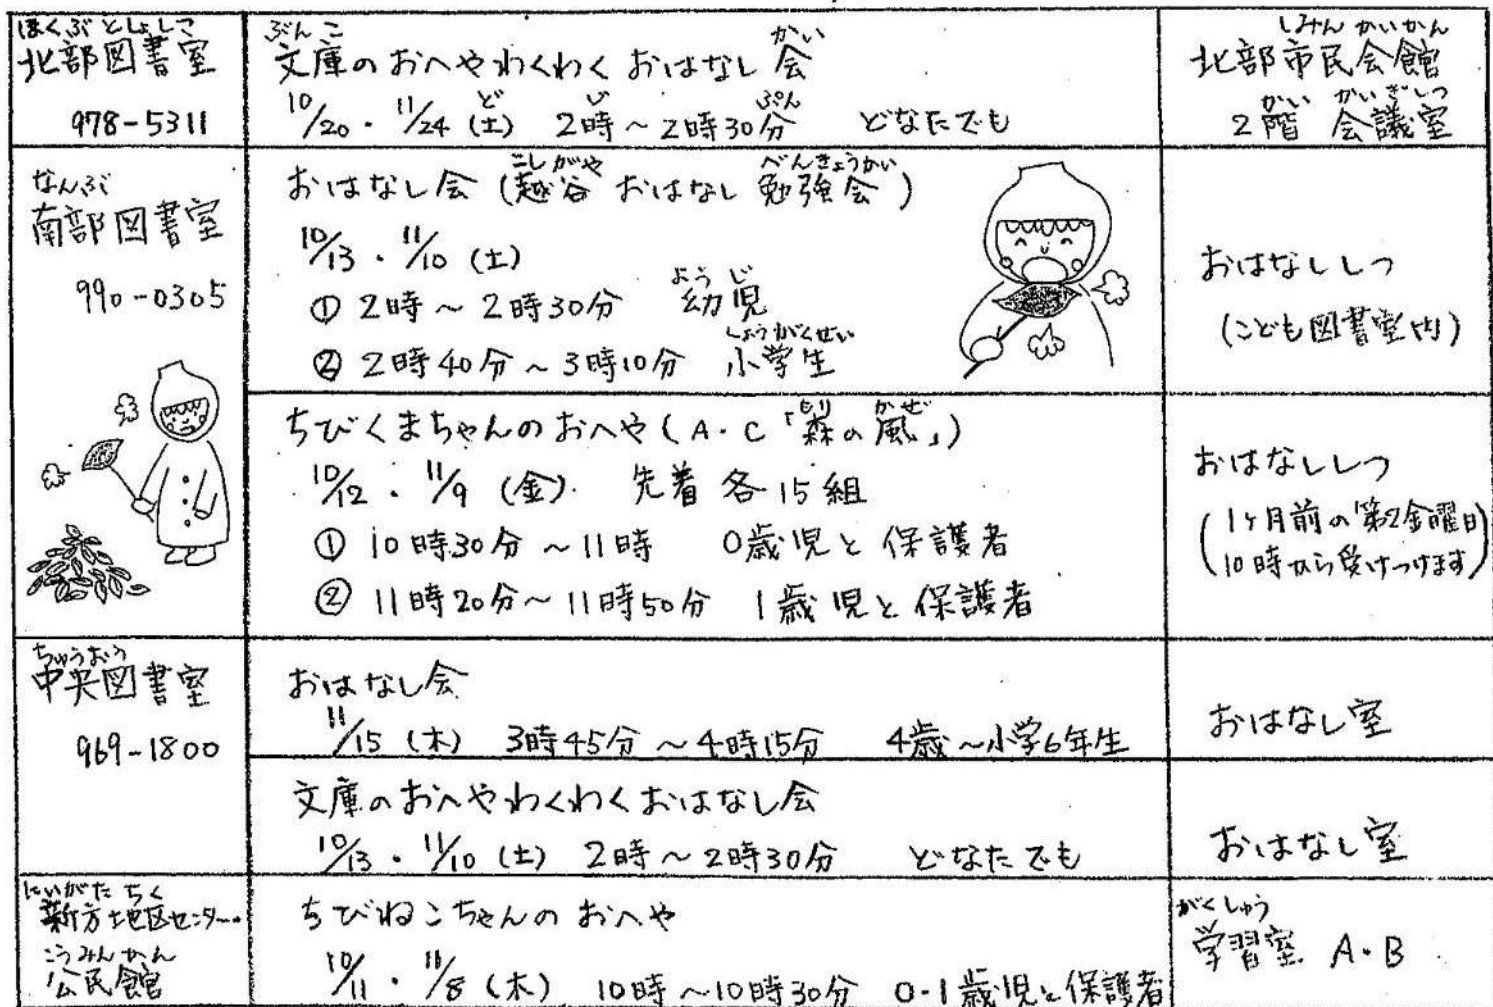 ほくぶとしょしつ
北部図書室
978-5311
ぶんこ かい
文庫のおへやわくわく おはなし会
ど じ ぷん
10/20・11/24(土) 2時~2時30分 どなたでも
しみんかいかん
北部市民会館
かい かいぎしつ
2階 会議室
なんぶ
南部図書室
990-0305
こしがや べんきょうかい
おはなし会(越谷 おはなし 勉強会)
10/13・11/10(土)
ようじ
① 2時~2時30分 幼児
しょうがくせい
② 2時40分~3時10分 小学生
おはなししつ
(こども図書室内)
もり かぜ
ちびくまちゃんのおへや(A・C「森の風」)
10/12・11/9(金) 先着 各15組
① 10時30分~11時 0歳児と保護者
② 11時20分~11時50分 1歳児と保護者
おはなししつ
(1ヶ月前の第2金曜日
10時から受けつけます)
ちゅうおう
中央図書室
969-1800
おはなし会
11/15(木) 3時45分~4時15分 4歳~小学6年生
おはなし室
文庫のおへやわくわくおはなし会
10/13・11/10(土) 2時~2時30分 どなたでも
おはなし室
にいがたちく
新方地区センター・
こうみんかん
公民館
ちびねこちゃんの おへや
10/11・11/8(木) 10時~10時30分 0・1歳児と保護者
がくしゅう
学習室 A・B